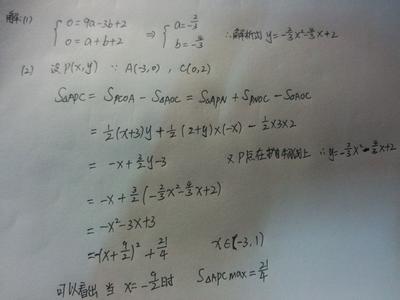 解:(1) { 0=9a-3b+2 0=a+b+2 ⇒ { a=-2/3 b=-4/3 ∴解析式 y=-2/3x²-4/3x+2
(2) 设P(x,y) ∵ A(-3,0), C(0,2)
S△APC = SPCOA - S△AOC = S△APN + SPNOC - S△AOC
= 1/2(x+3)y + 1/2(2+y)×(-x) - 1/2×3×2
= -x+3/2y-3 又P点在抛物线上 ∴y=-2/3x²-4/3x+2
= -x+3/2(-2/3x²-4/3x+2)
= -x²-3x+3
=-(x+9/2)²+21/4 x∈(-3,1)
可以看出 当 x=-9/2时 S△APCmax=21/4